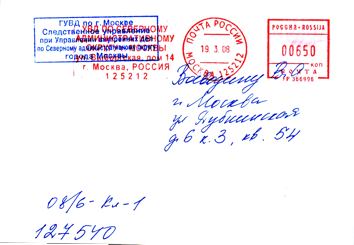 ГУВД по г. Москве
Следственное управление
при Управлении внутренних дел
по Северному административному округу
города Москвы
УВД ПО СЕВЕРНОМУ
АДМИНИСТРАТИВНОМУ
ОКРУГУ МОСКВЫ
дом 14
г. Москва, РОССИЯ
125212
ПОЧТА РОССИИ
19 3 08
МОСКВА 125212
РОССИЯ-ROSSIJA
00650 КОП
ПОЧТА
В. О.
г. Москва
ул Дубнинская
д. 6 к. 3, кв. 54
08/6-Кл-1
127540